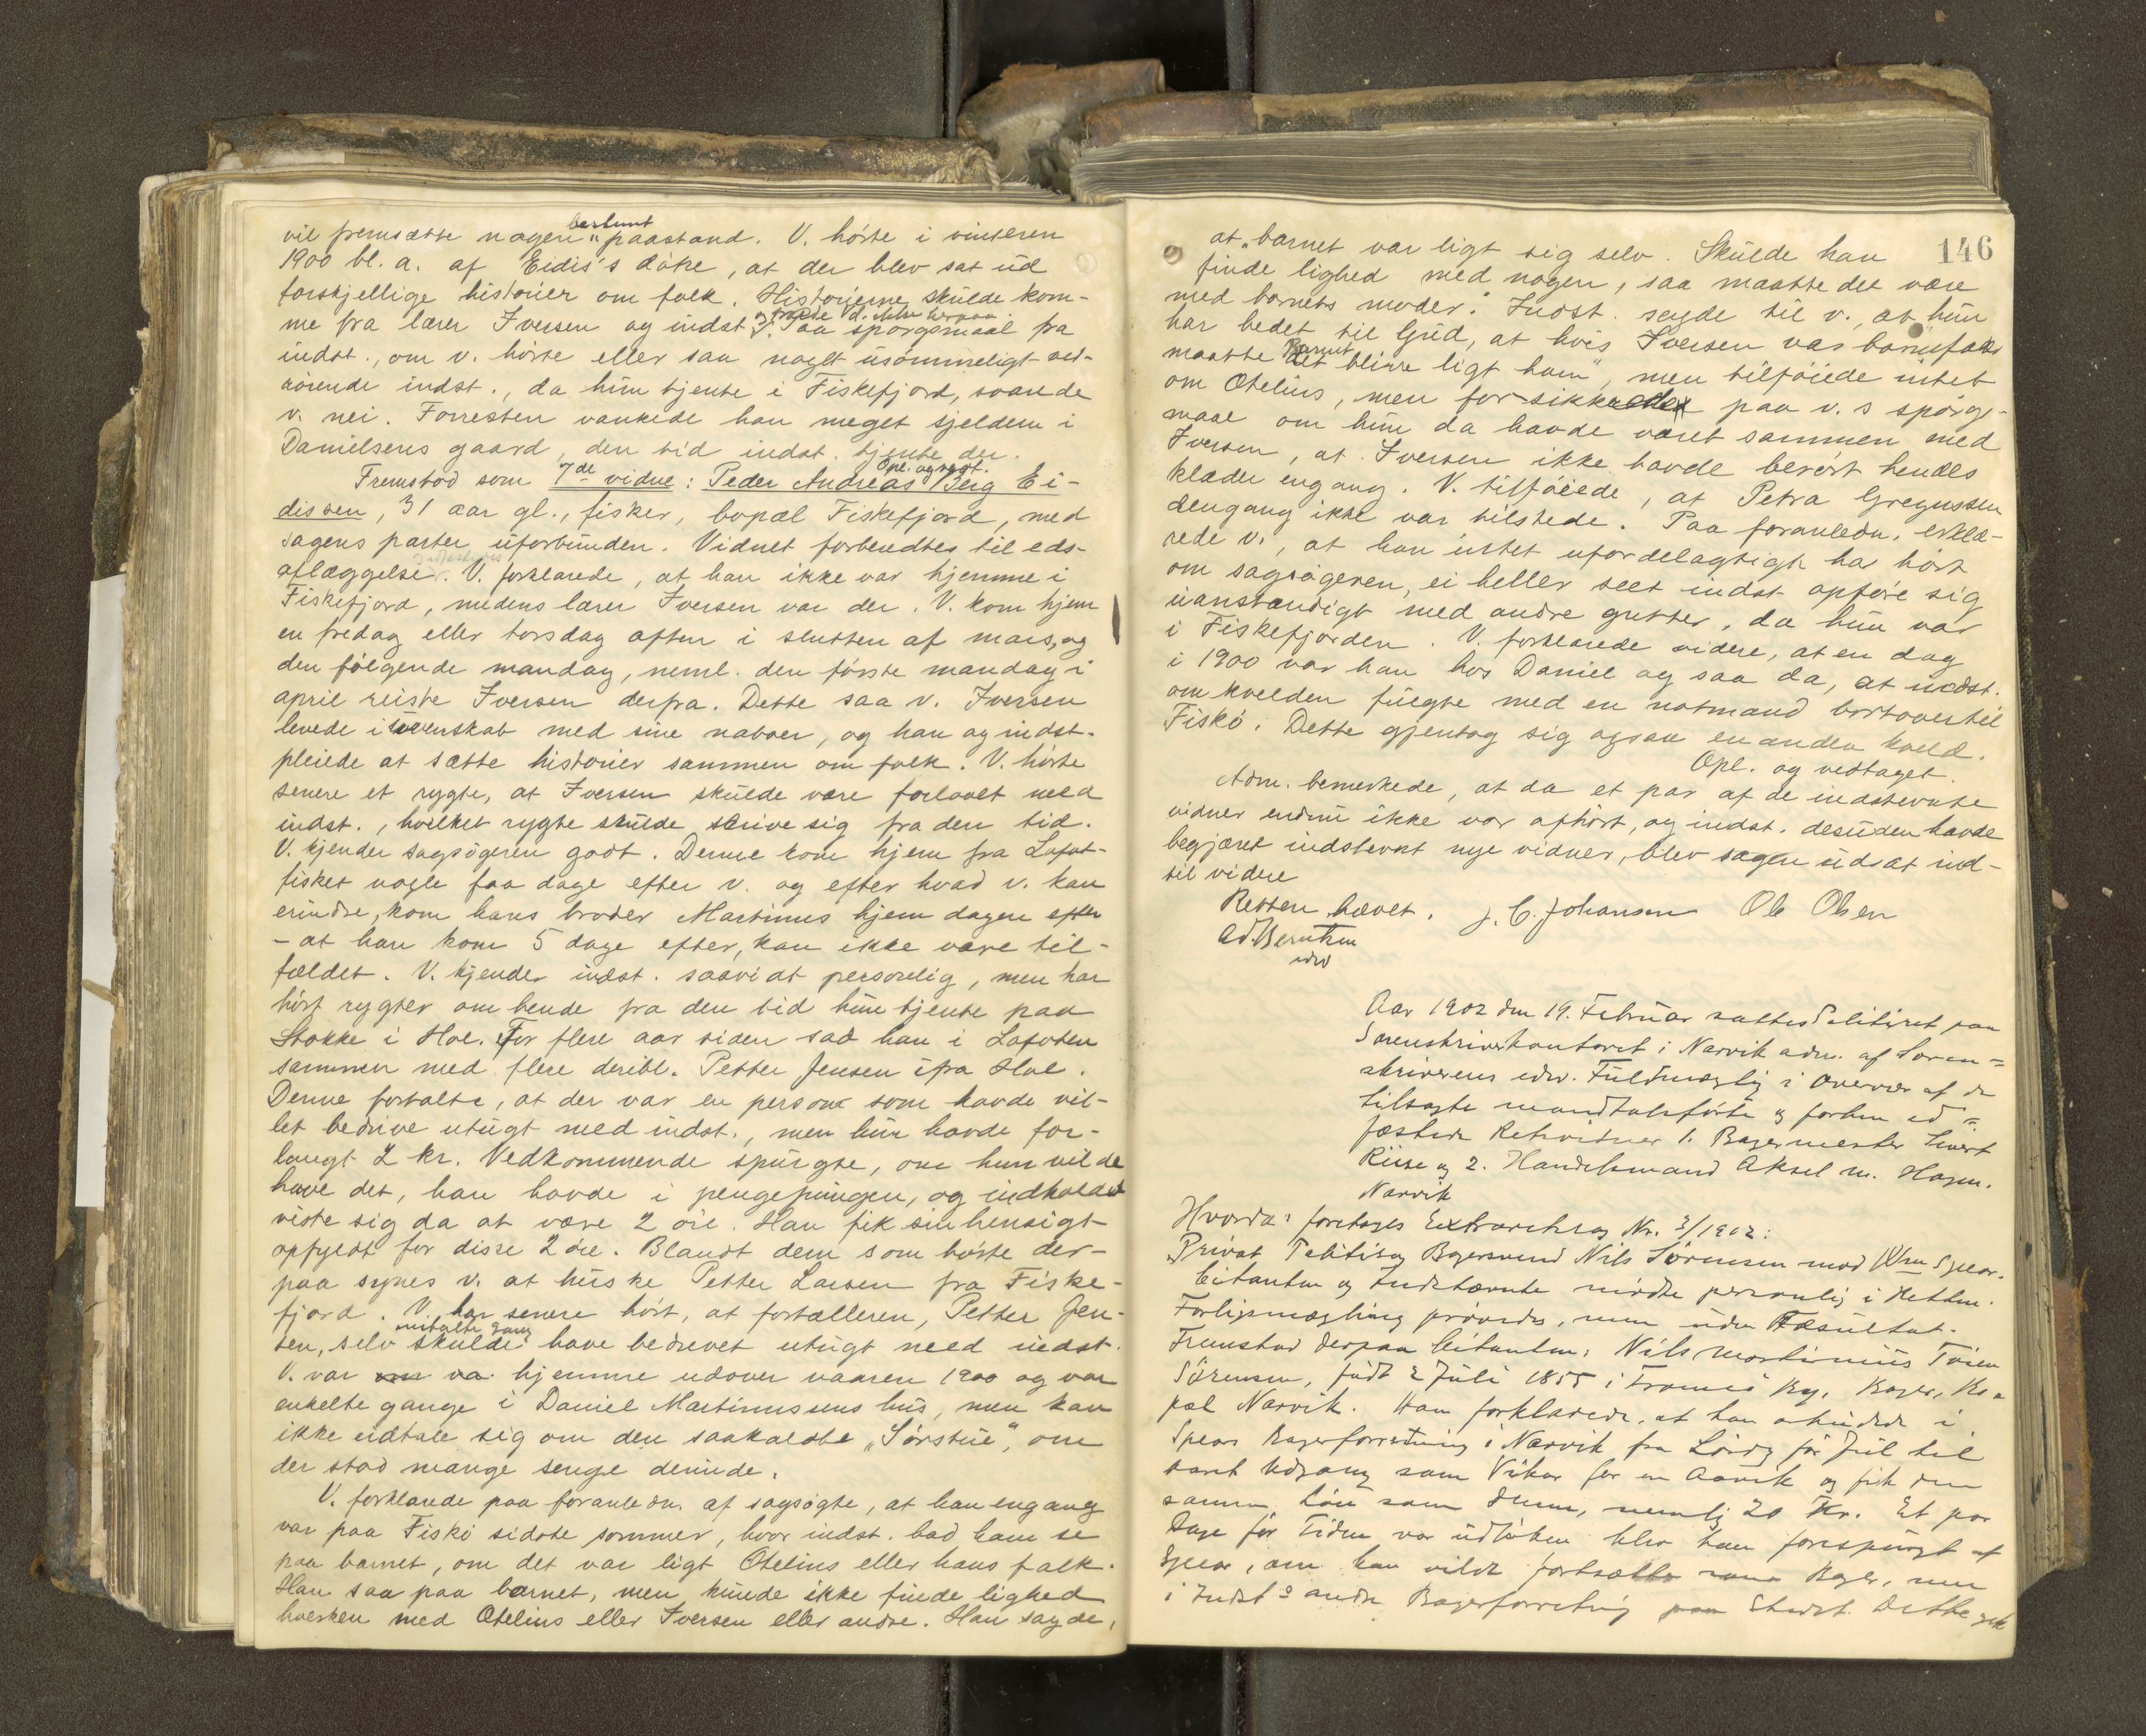 vil fremsætte nogen bestemt paastand. V. hørte i vinteren
1900 bl. a. af Eidis's døtre, at der blev sat ud
forskjellige historier om folk. Historierne skulde kom-
me fra lærer Iversen og indst. Paa spørgsmaal fra
indst., om v. hørte eller saa noget usømmeligt ved-
rørende indst., da hun tjente i Fiskefjord, svarede
v. nei. Forresten vankede han meget sjelden i
Danielsens gaard, den tid indst. tjente der.
Opl. og vedt.
Fremstod som 7de vidne: Peder Andreas Berg Ei-
dissen, 31 aar gl., fisker, bopæl Fiskefjord, med
sagens parter uforbunden. Vidnet forberedtes til eds-
aflæggelse. V. forklarede, at han ikke var hjemme i
Fiskefjord, medens lærer Iversen var der. V. kom hjem
en fredag eller torsdag aften i slutten af mars, og
den følgende mandag, neml. den første mandag i
april reiste Iversen derfra. Dette saa v. Iversen
levede i uvenskab med sine naboer, og han og indst.
pleiede at sætte historier sammen om folk. V. hørte
senere et rygte, at Iversen skulde være forlovet med
indst., hvilket rygte skulde skrive sig fra den tid.
V. kjender sagsøgeren godt. Denne kom hjem fra Lofot-
fisket nogle faa dage efter v. og efter hvad v. kan
erindre, kom hans broder Martinus hjem dagen efter
- at han kom 5 dage efter, kan ikke være til-
fældet. V. kjender indst. saavidt personlig, men har
hørt rygter om hende fra den tid hun tjente paa
Stokke i Hol. For flere aar siden sad han i Lofoten
sammen med flere deribl. Petter Jensen ifra Hol.
Denne fortalte, at der var en person som havde vil-
let bedrive utugt med indst., men hun havde for-
langt 2 kr. Vedkommende spurgte, om hun vilde
have det, han havde i pengepungen, og indholdet
viste sig da at være 2 øre. Han fik sin hensigt
opfyldt for disse 2 øre. Blandt dem som hørte der-
paa synes v. at huske Petter Larsen fra Fiske-
fjord. V. har senere hørt, at fortælleren, Petter Jen-
sen, selv skulde have bedrevet utugt med indst.
V. var hjemme udover vaaren 1900 og var
enkelte gange i Daniel Martinussens hus, men kan
ikke udtale sig om den saakaldte „Sørstue", om
der stod mange senge derinde.
V. forklarede paa foranledn. af sagsøgte, at han engang
var paa Fiskø sidste sommer, hvor indst. bad ham se
paa barnet, om det var ligt Otelius eller hans folk.
Han saa paa barnet, men kunde ikke finde lighed
hverken med Otelius eller Iversen eller andre. Han sagde,
146
at „barnet var ligt sig selv. Skulde han
finde lighed med nogen, saa maatte det være
med barnets moder." Indst. sagde til v., at hun
har bedet til Gud, at hvis Iversen var barnefader
maatte Barnet blive ligt ham", men tilføiede intet
om Otelius, men forsikkrede paa v.s spørgs-
maal om hun da havde været sammen med
Iversen, at Iversen ikke havde berørt hendes
klæder engang. V. tilføiede, at Petra Gregussen
dengang ikke var tilstede. Paa foranledn. erklæ-
rede v., at han intet ufordelagtigt har hørt
om sagsøgeren, ei heller seet indst. opføre sig
uanstændigt med andre gutter, da hun var
i Fiskefjorden. V. forklarede videre, at en dag
i 1900 var han hos Daniel og saa da, at indst.
om kvelden fulgte med en notmand bortover til
Fiskø. Dette gjentog sig ogsaa en anden kveld.
Opl. og vedtaget.
Adm. bemerkede, at da et par af de indstevnte
vidner endnu ikke var afhørt, og indst. desuden havde
begjæret indstevnt nye vidner, blev sagen udsat ind-
til videre
Retten hævet. J. C. Johansen Ole Olsen
Ad. Berntsen
edsv
Aar 1902 den 19. Februar sattes Politiret paa
Sorenskriverkontoret i Narvik adm. af Soren-
skriverens edsv. Fuldmægtig i Overvær af de
tilsagte mandtalsførte og forhen ed-
fæstede Retsvidner 1. Bagermester Sivert
Riise og 2. Handelsmand Aksel M. Hagen.
Narvik
Hvorda: foretages Extraretssag Nr. 3/1902:
Privat Politisag Bagersvend Nils Sørensen mod Wm Spear.
Citanten og Indstævnte mødte personlig i Retten.
Forligsmægling prøvedes, men uden Resultat.
Fremstod derpaa Citanten: Nils Martinius
Sørensen, født 2 Juli 1855 i Tromsø By, Bager, Bo-
pæl Narvik. Han forklarede, at han arbeidede i
Spears Bagerforretning i Narvik fra Lørdag før Jul til
Aarets Udgang som Vikar for en og fik den
samme Løn som denne, nemlig 20 Kr. Et par
Dage før Tiden var udløben blev han forespurgt af
Spear, om han vilde fortsætte som Bager, men
i Indst.s anden Bagerforretning paa Stedet. Dette gik